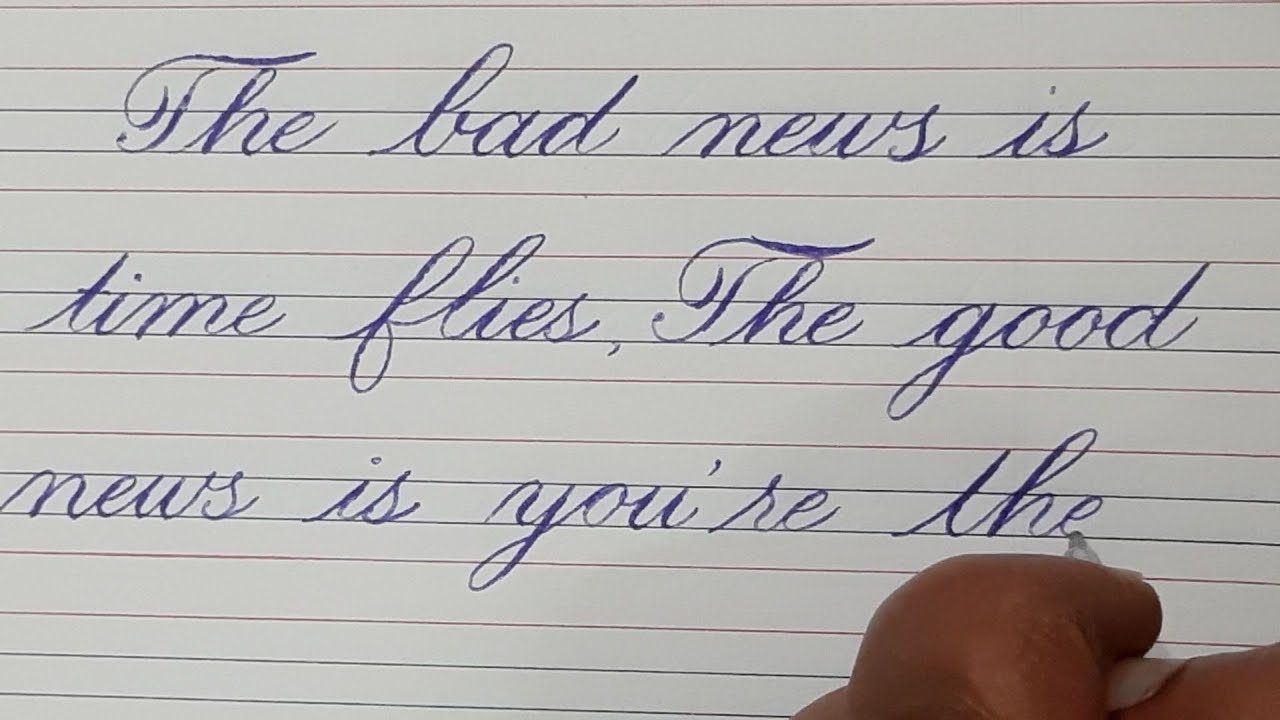 The bad news is
time flies, The good
news is you're the